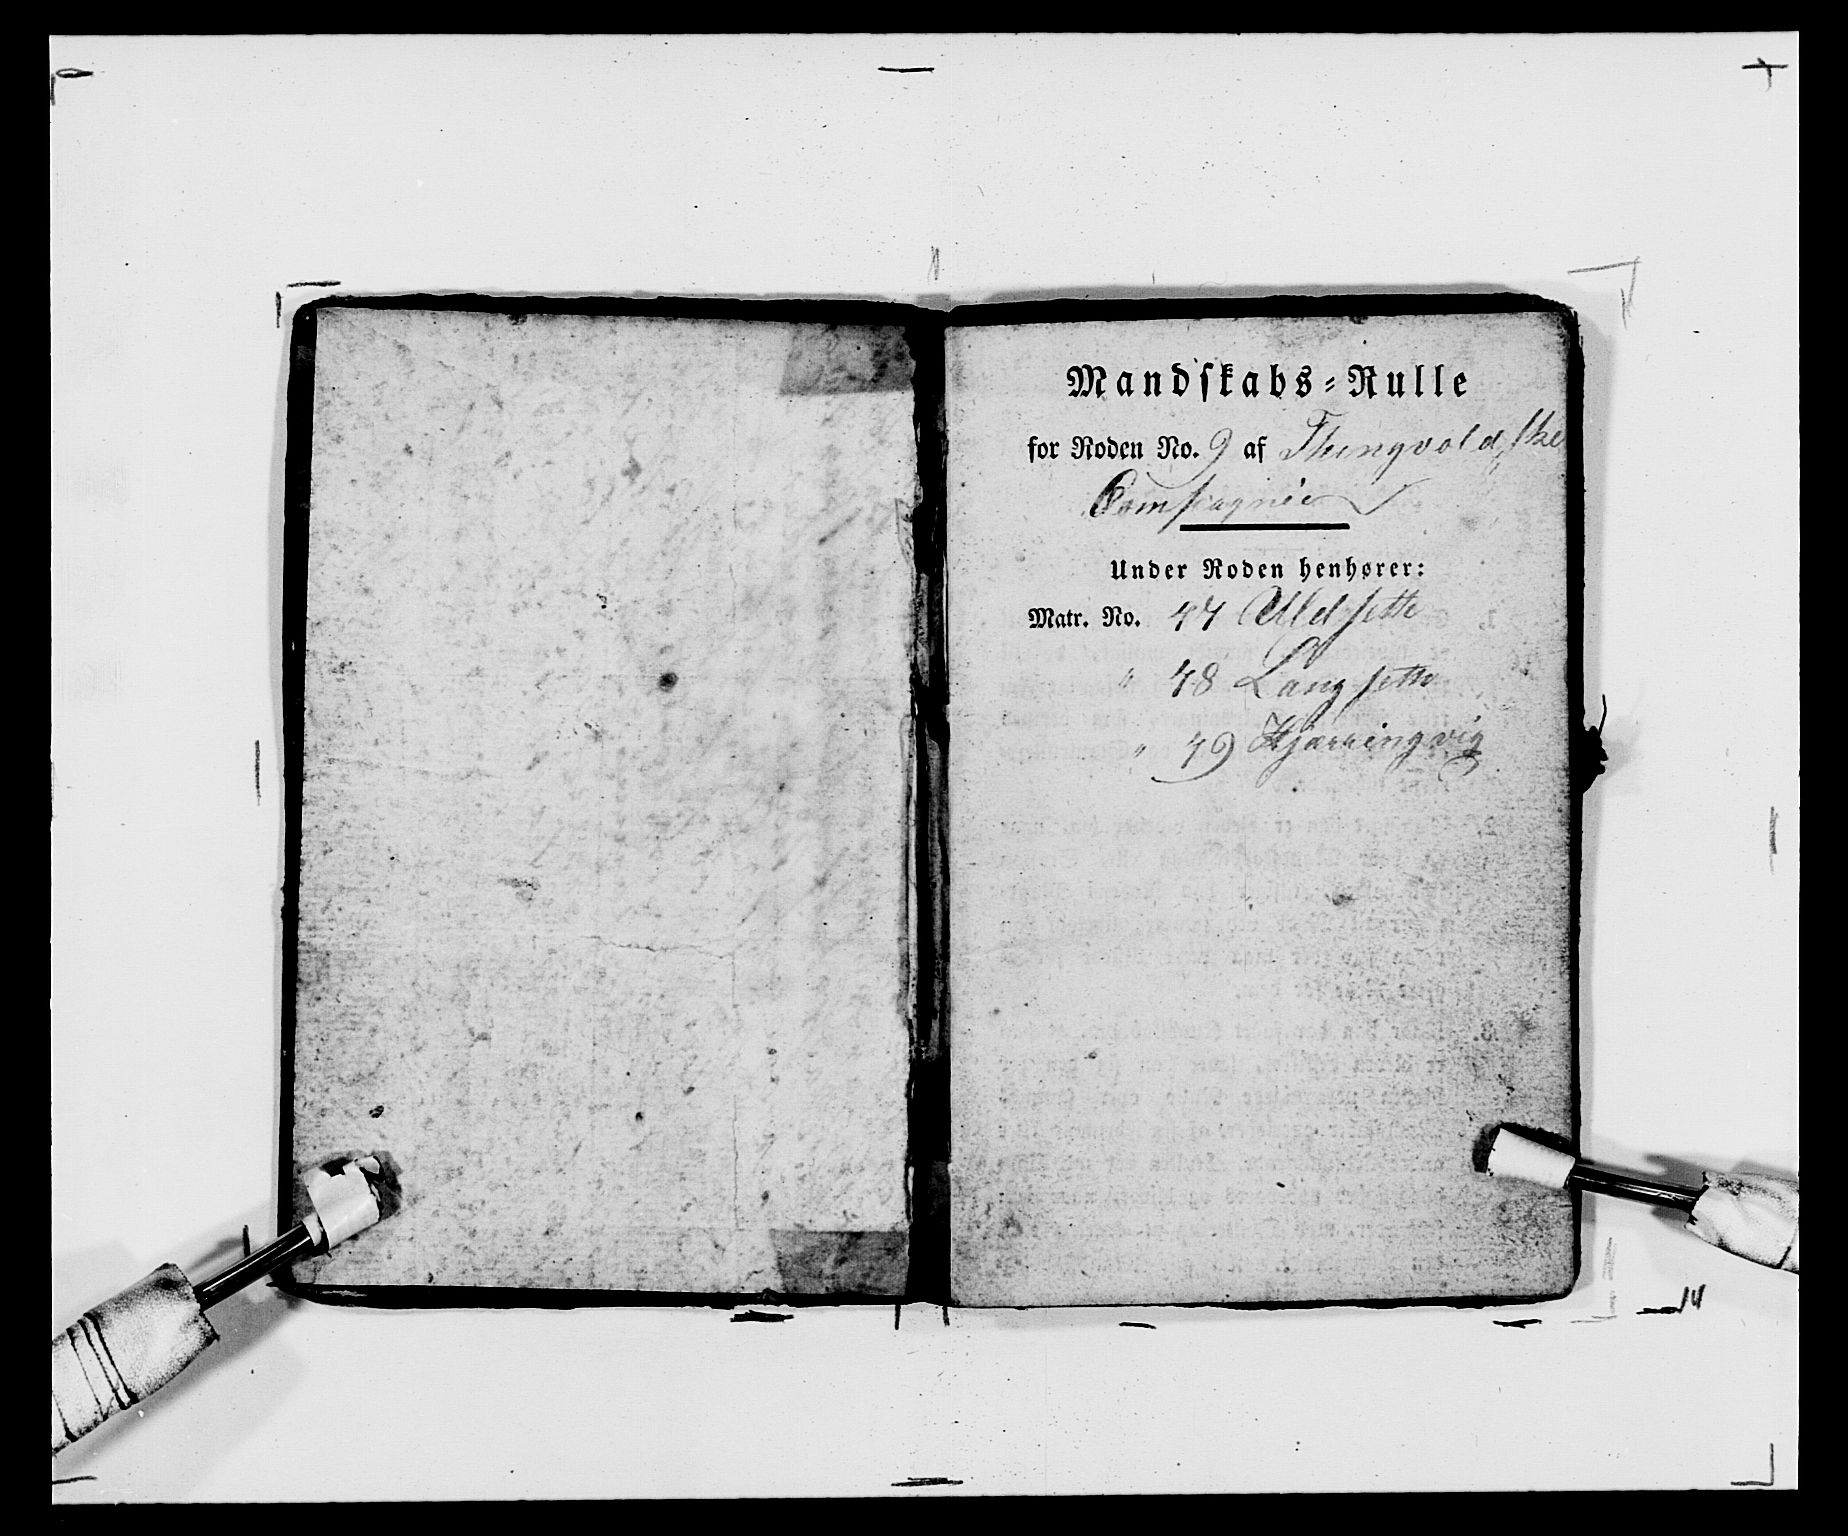 Mandskabs-Rulle
for Roden No. 9 af Thingvoldske
Compagnie
Under Roden henhører:
Matr. No. 47 Uldsette
" 48 Langsette
" 49 Hjærringvig
14